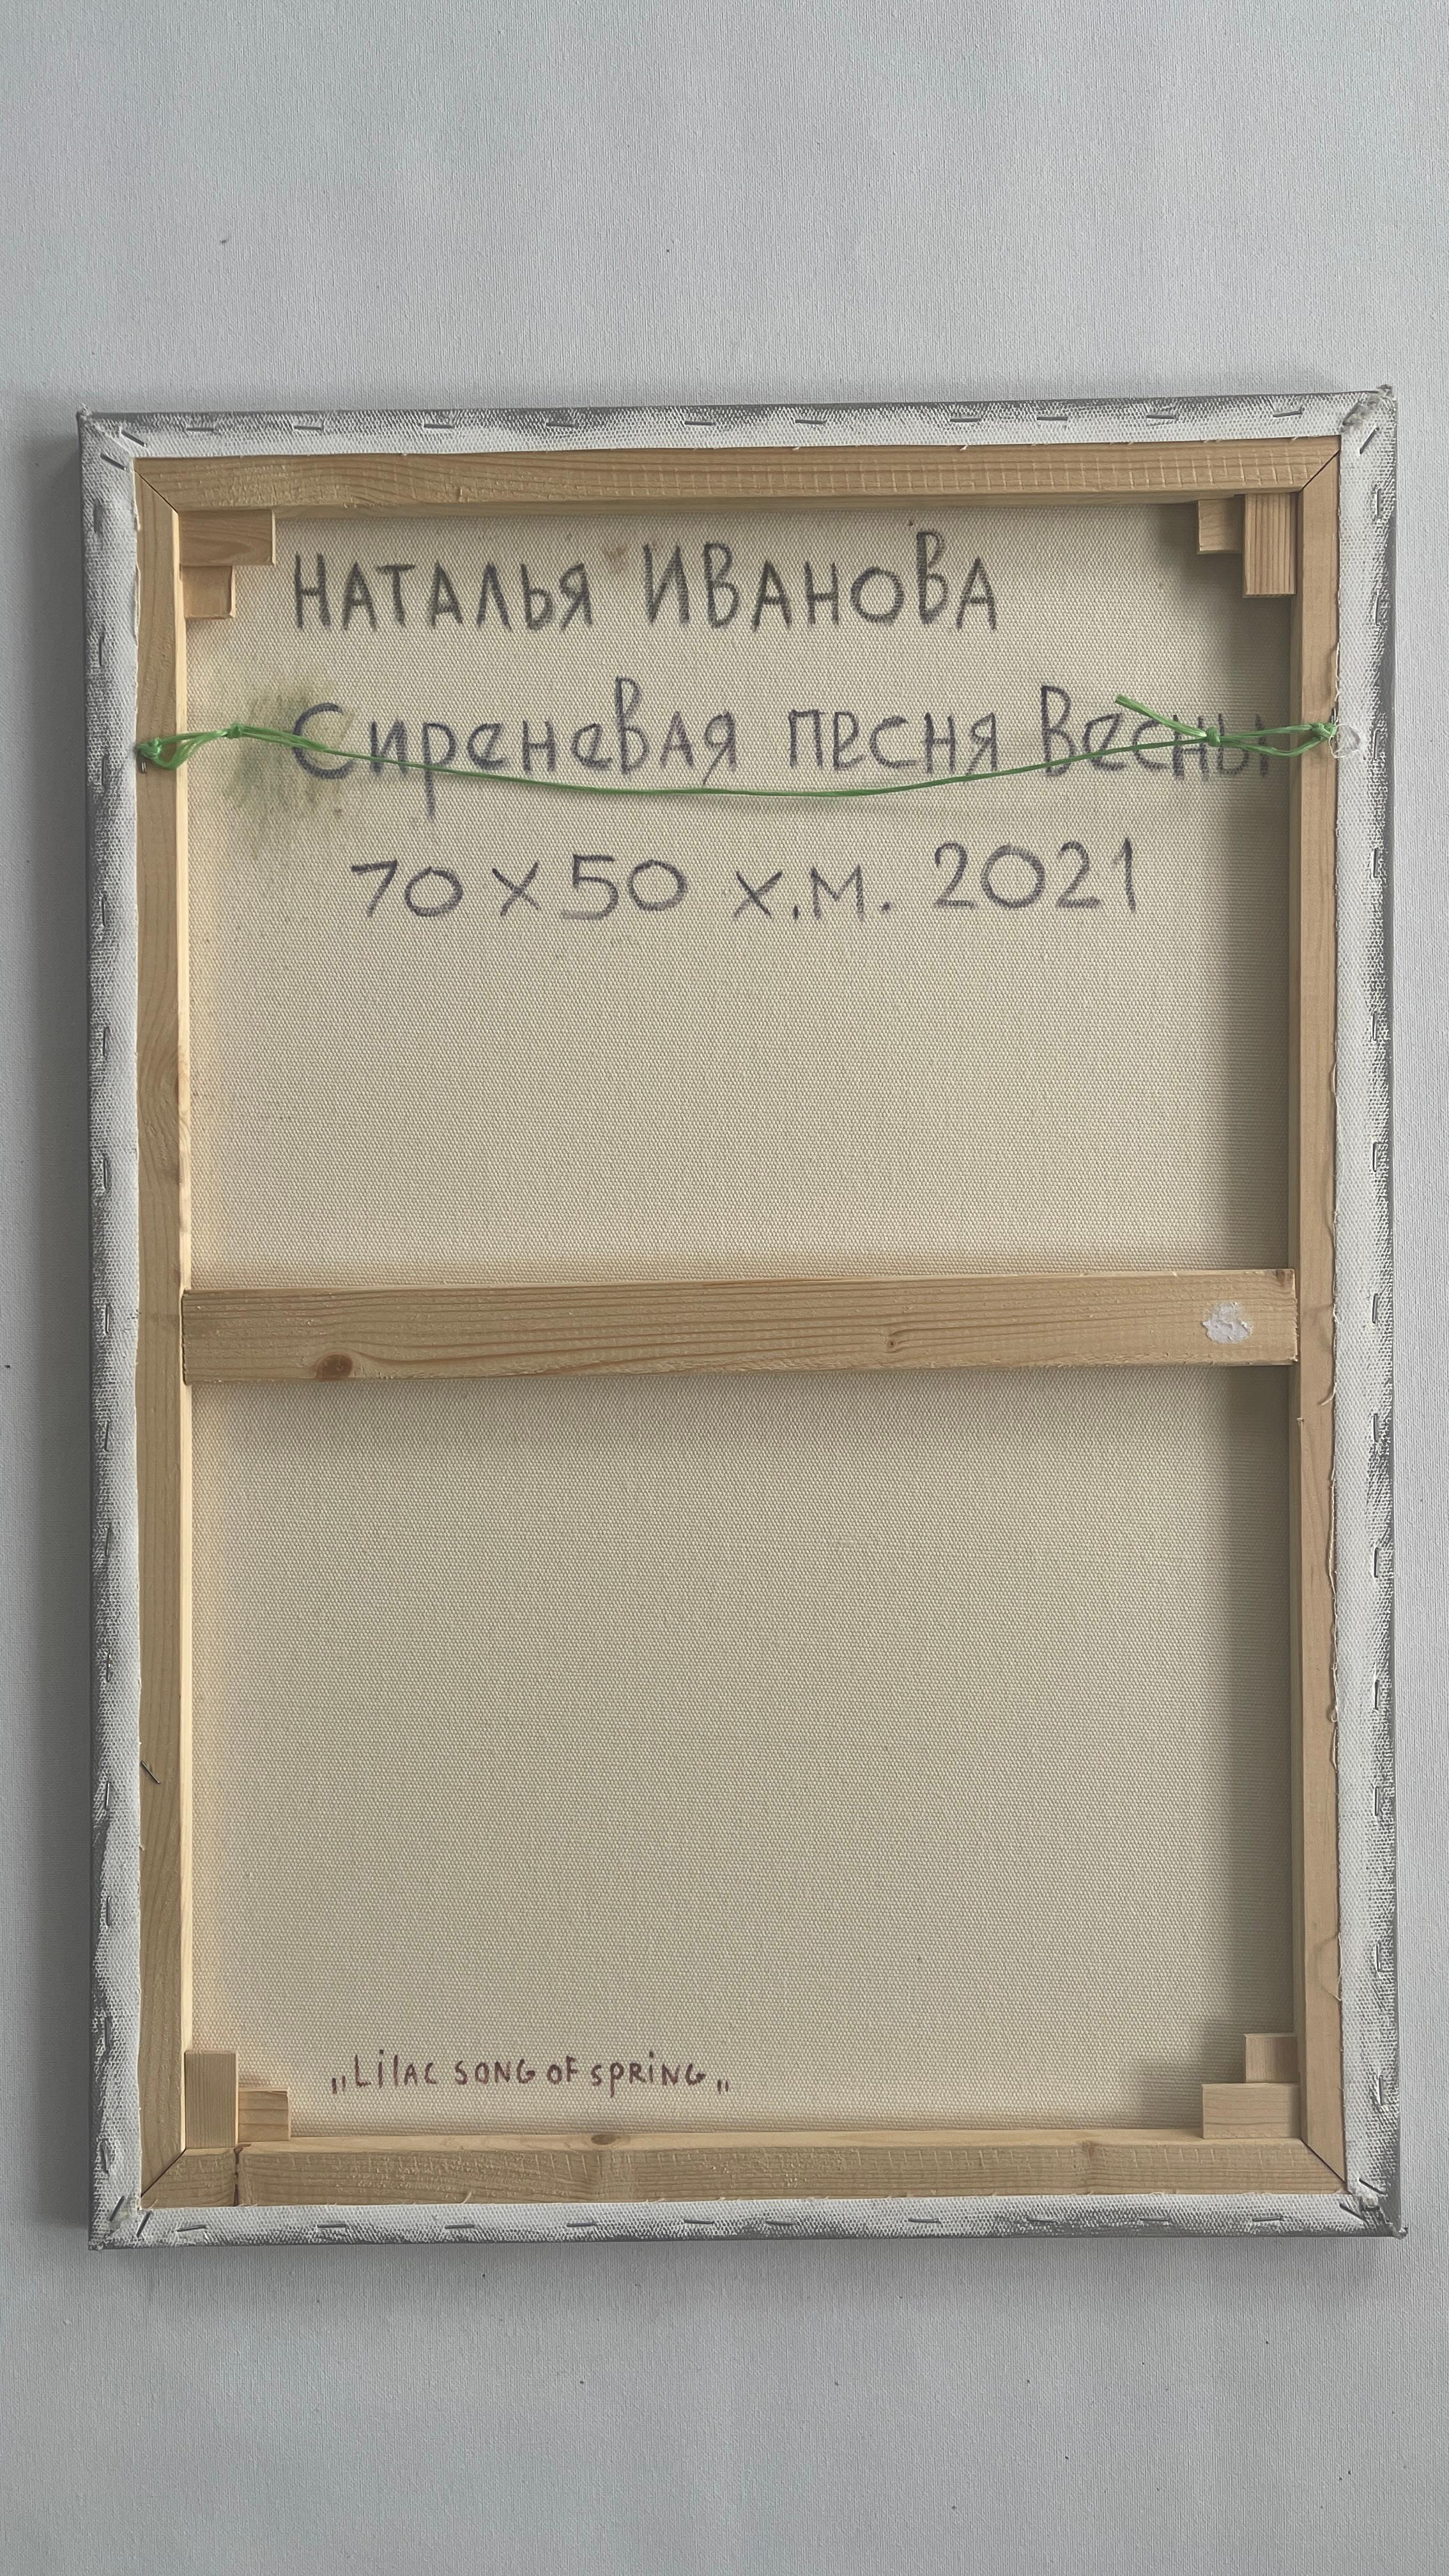 НАТАЛЬЯ ИВАНОВА
Сиреневая песня Весны
70 х 50 х.м. 2021
„Lilac song of spring„